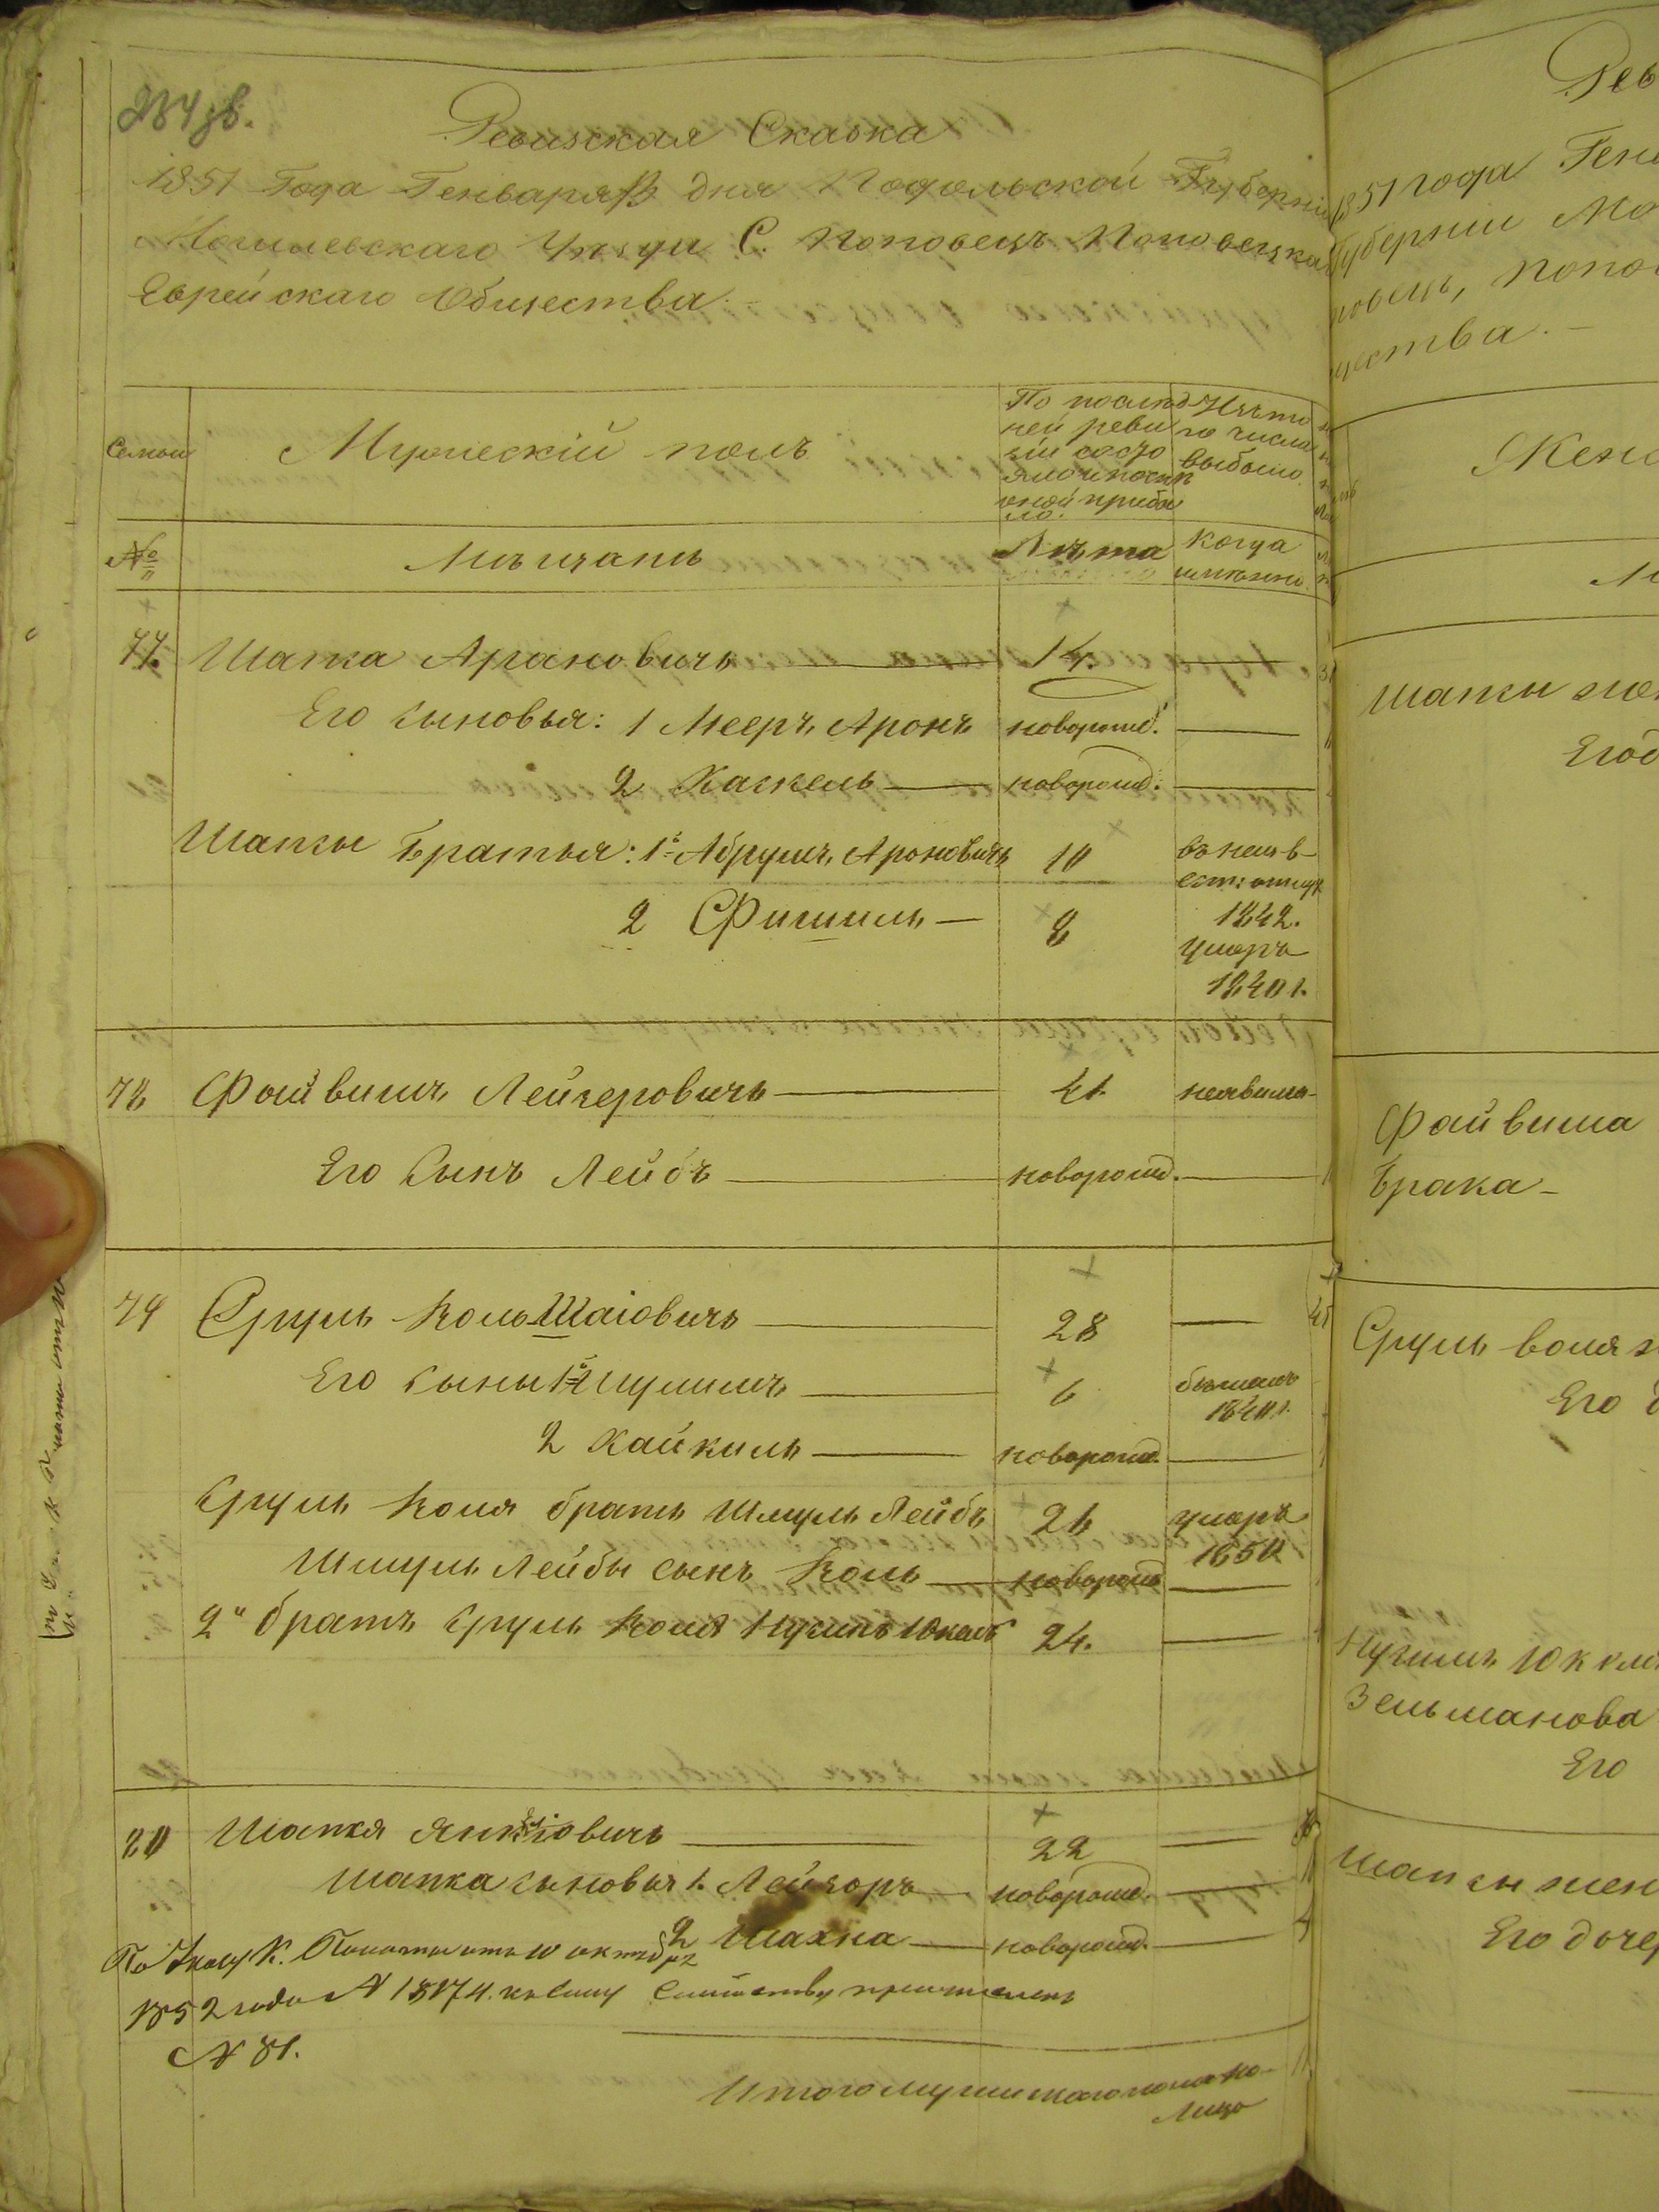 Ревизская Сказка
1851 Года Генваря дня Подольской Губерніи
Могилевскаго Уѣзда С. Поповецъ Поповецкаго
Еврейскаго Общества
Семьи
Мужескій полъ
По послѣд
ней реви
зіи состо
яло и послѣ
оной прибы
ло.
Изъ то
го числа
выбыло.
№
Мѣщанъ
Лѣта
Когда
именно
77. Шапка Ароновичъ 14.
Его сыновья: 1 Мееръ Аронъ новорожд.
2 Хаскель новорожд.
Шапсы братья: 1й Абрумъ Ароновичъ 10 въ неизв
ест: отлуч
1842.
2 Фишиль 8 умеръ
1840 г.
78 Файвишъ Лейзеровичъ 41. неявился
Его Сынъ Лейбъ новорожд.
79 Сруль Коль Шаіовичъ 28
Его сыны 1й Шулимъ 6 бѣжалъ
1840 г.
2 Хайкиль новорожд.
Сруль Коля братъ Шмуль Лейбъ 26 умеръ
1850
Шмуль Лейбы сынъ Коль новорожд
2й братъ Сруль Коля Нухимъ Юкель 24.
80 Шапся Янкіовичъ 22
Шапка сыновья 1. Лейзоръ новорожд.
2 Шахна новорожд.
По Указу К. Палаты отъ 10 октября
1852 года № 18174. къ сему Семейству причисленъ
№ 81.
Итого мужескаго пола на-
лицо
Рев
1851 года Ген
Губерніи Мо
повецъ, Попов
щества.
Женс
Шапсы жен
Его д
Файвиша
Брака
Сруль Коля ж
Его д
Нухимъ Юкель
Зельманова
Его
Шапсы жен
Его дочер